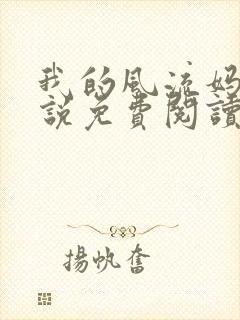 我的风流妈
說免費閱讀
揚帆奮